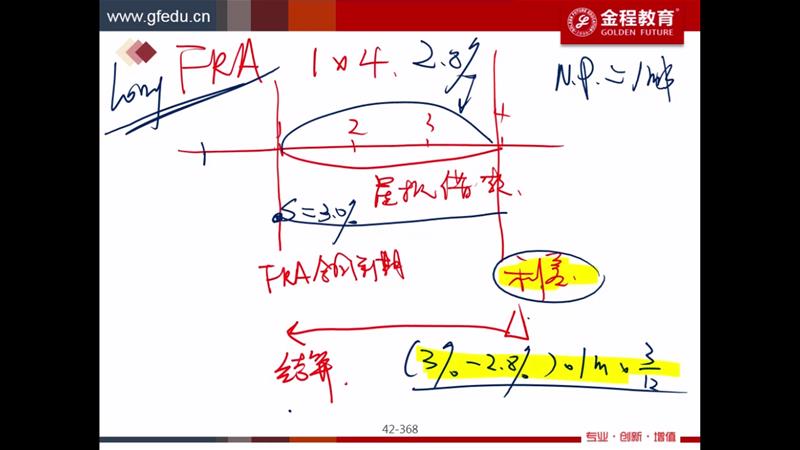 www.gfedu.cn
金程教育®
GOLDEN FUTURE
Long FRA 1×4. 2.8%
N.P. = 1m
1 2 3 4
虚拟借款.
S=3.0%
FRA合同到期
利差.
结算.
(3%-2.8%)·1m×3/12
42-368
专业·创新·增值